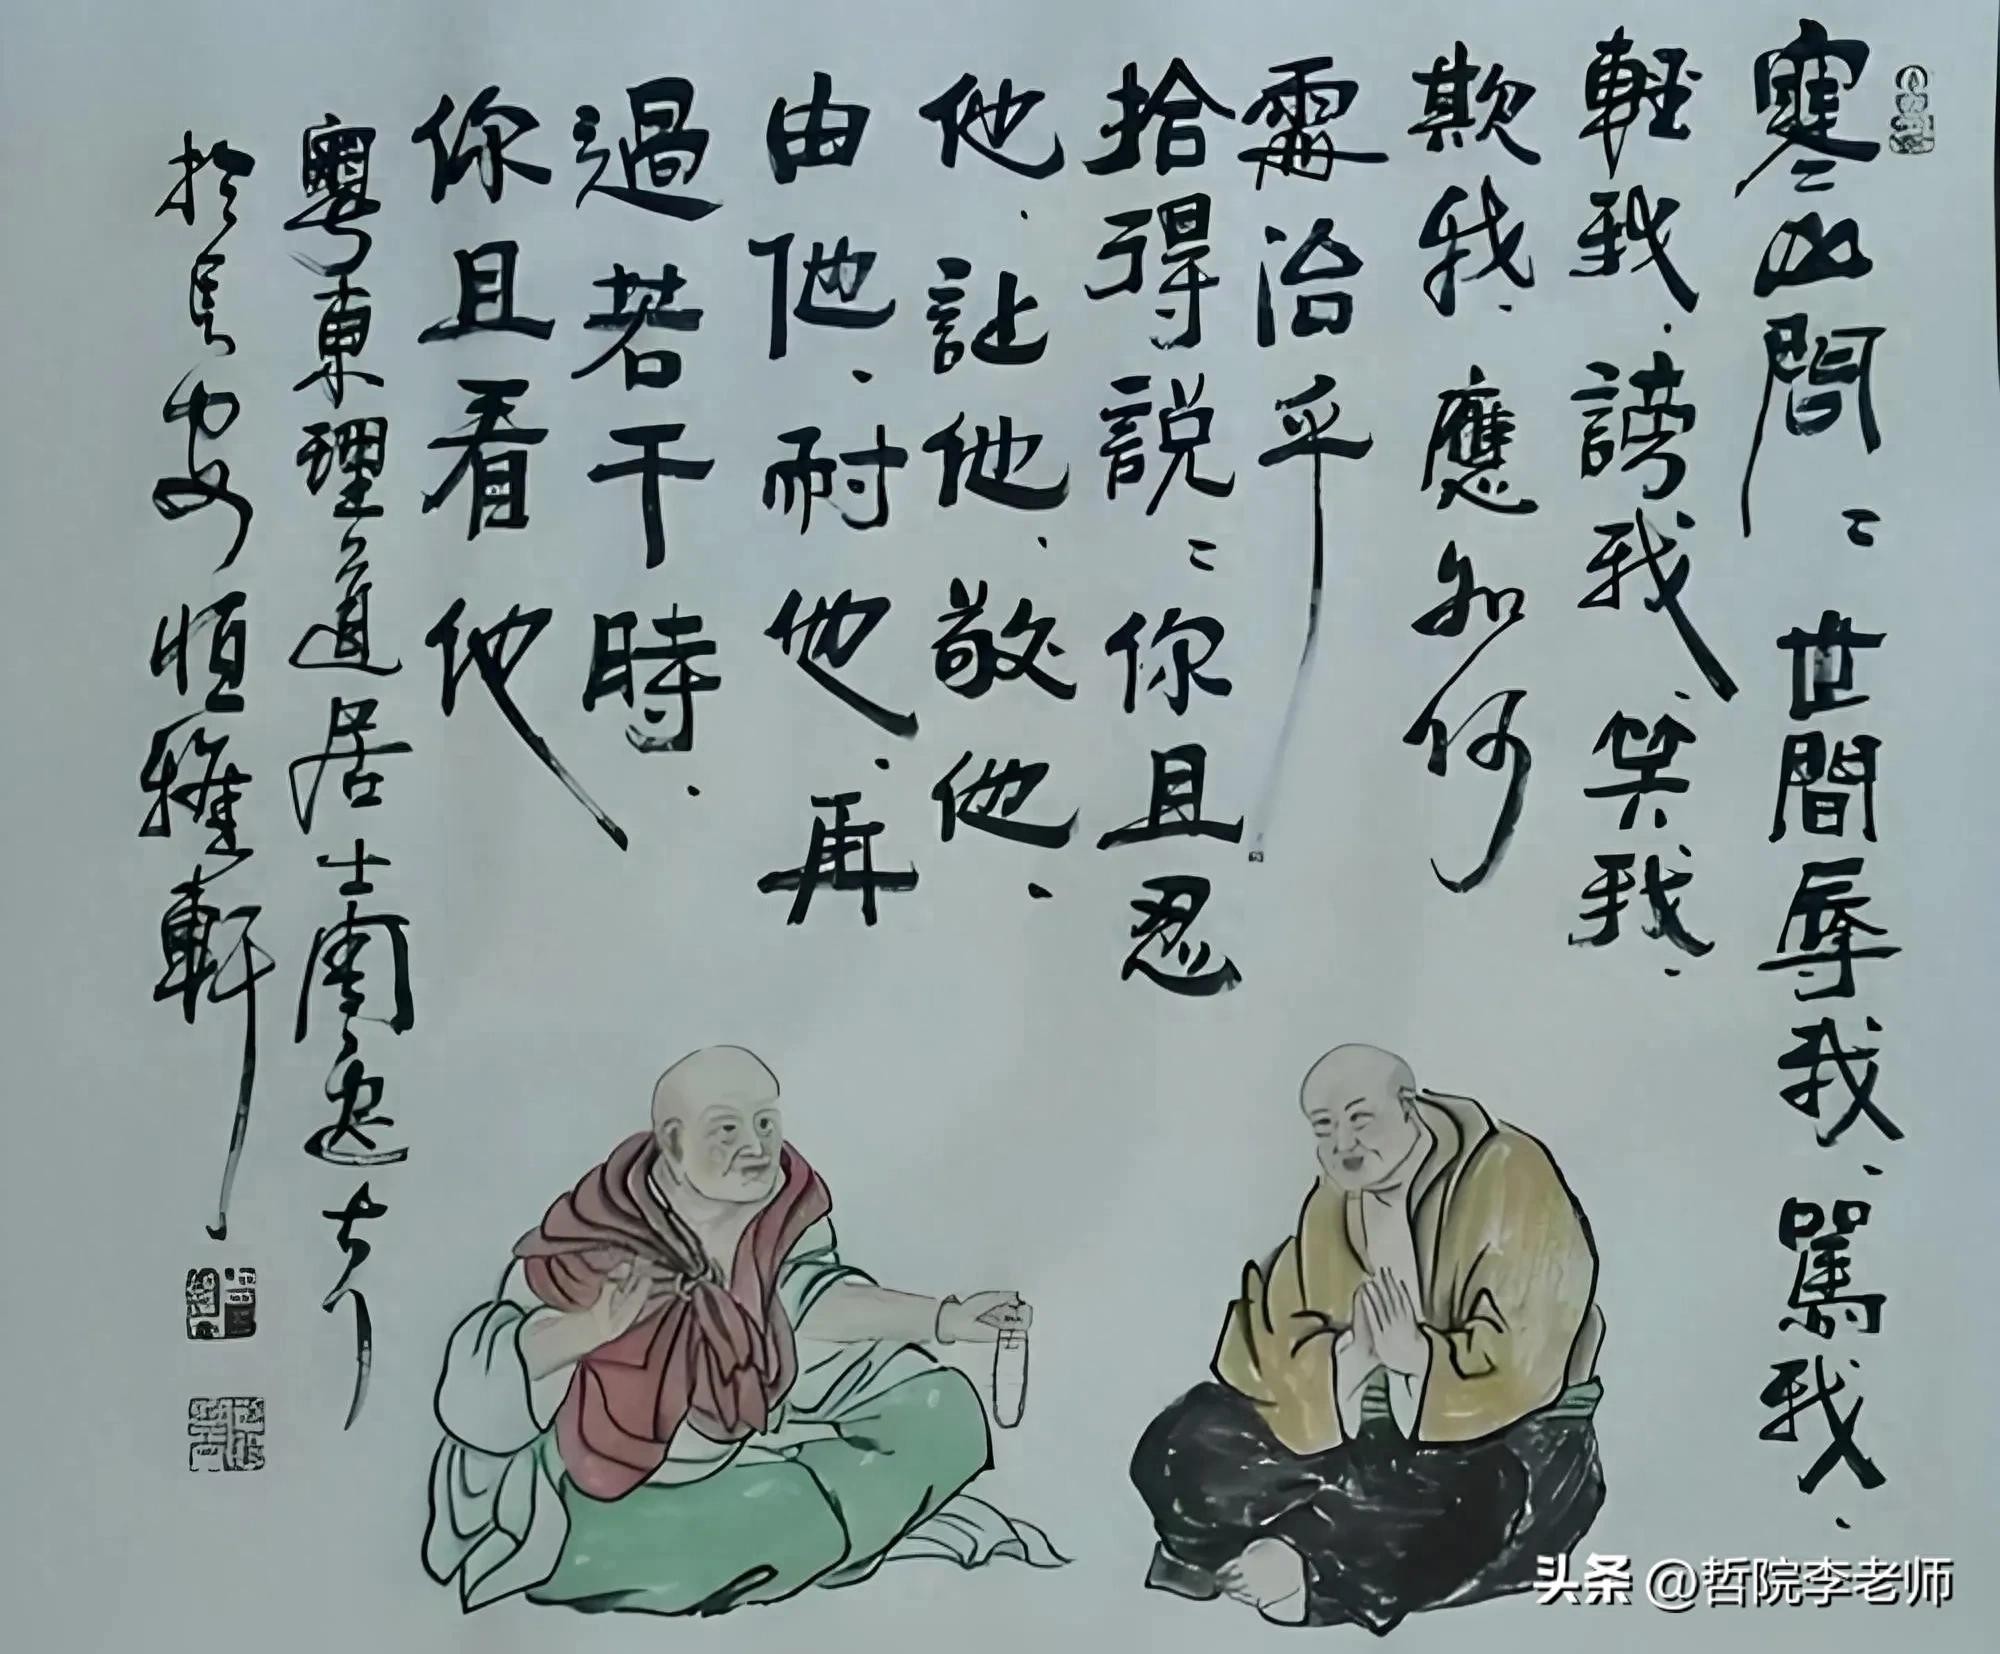 寒山問：世間辱我、罵我、
輕我、謗我、笑我、
欺我、應如何
處治乎
拾得説：你且忍
他、讓他、敬他、
由他、耐他、再
過若干時、
你且看他
粤東理道居士
於長安恒雅軒
头条 @哲院李老师